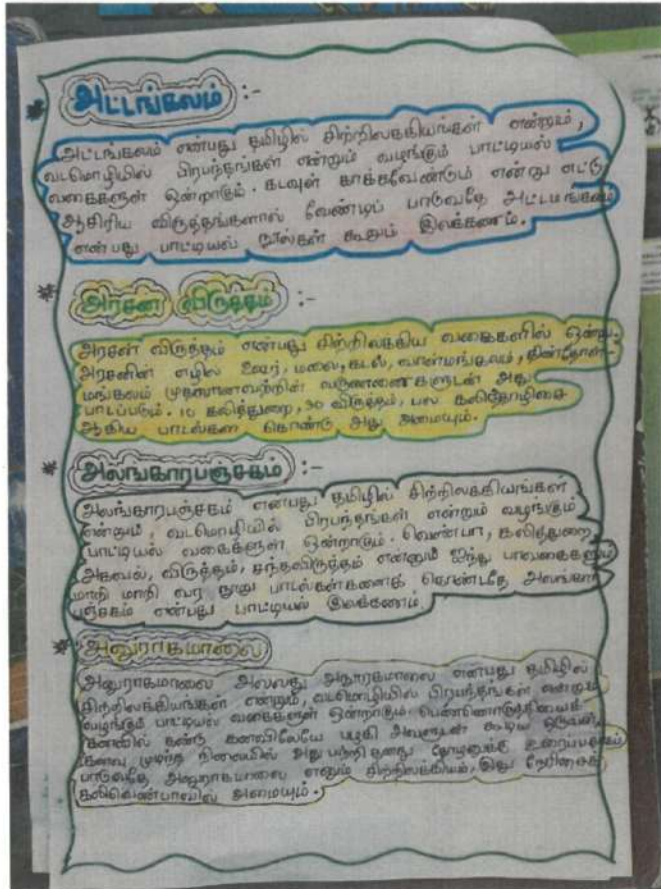 அட்டங்கலம் :-
அட்டங்கலம் என்பது தமிழில் சிற்றிலக்கியங்கள் என்றும்,
வடமொழியில் பிரபந்தங்கள் என்றும் வழங்கும் பாட்டியல்
வகைகளுள் ஒன்றாகும். கடவுள் காக்கவேண்டும் என்று எட்டு
ஆசிரிய விருத்தங்களால் வேண்டிப் பாடுவதே அட்டமங்கலம்
என்பது பாட்டியல் நூல்கள் கூறும் இலக்கணம்.
அரசன் விருத்தம் :-
அரசன் விருத்தம் என்பது சிற்றிலக்கிய வகைகளில் ஒன்று.
அரசனின் எழில் ஊர், மலை, கடல், வாண்மங்கலம், திண்தோள்-
மங்கலம் முதலானவற்றின் வருணணைகளுடன் அது
பாடப்படும். 10 கலித்துறை, 30 விருத்தம், பல கலித்தோழிசை
ஆகிய பாடல்களை கொண்டு அது அமையும்.
அலங்காரபஞ்சகம் :-
அலங்காரபஞ்சகம் என்பது தமிழில் சிற்றிலக்கியங்கள்
என்றும், வடமொழியில் பிரபந்தங்கள் என்றும் வழங்கும்
பாட்டியல் வகைகளுள் ஒன்றாகும். வெண்பா, கலித்துறை
அகவல், விருத்தம், சந்தவிருத்தம் என்னும் ஐந்து பாவகைகளும்
மாறி மாறி வர நூறு பாடல்கள்களைக் கொண்டதே அலங்கார
பஞ்சகம் என்பது பாட்டியல் இலக்கணம்.
அனுராகமாலை
அனுராகமாலை அல்லது அநுராகமாலை என்பது தமிழில்
சிற்றிலக்கியங்கள் என்றும், வடமொழியில் பிரபந்தங்கள் என்றும்
வழங்கும் பாட்டியல் வகைகளுள் ஒன்றாகும். பெண்ணொருத்தியைக்
கனவில் கண்டு கனவிலேயே பழகி அவளுடன் கூடிய ஒருவன்,
கனவு முடிந்த நிலையில் அது பற்றி தனது தோழனுக்கு உரைப்பதாகப்
பாடுவதே அனுராகமாலை எனும் சிற்றிலக்கியம், இது நேரிசைக்
கலிவெண்பாவில் அமையும்.